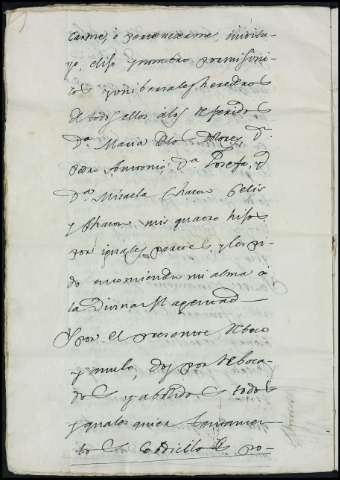 tarme, o pertenecerme, institu
yo, elijo y nombro por mis uni
cos y unibersales herederos
de todos ellos a los referidos
D.ª Maria de los Dolores, D.n
Pedro Antonio, D.ª Josefa, y
D.ª Micaela Chacon Felis
y Chacon mis quatro hijos
por iguales partes, y les pi
do encomienden mi alma á
la Divina Magestad
Y por el presente reboco
y anulo, doy por reboca
dos y abolidos todos
y qualesquiera testamen
tos Codicilos po